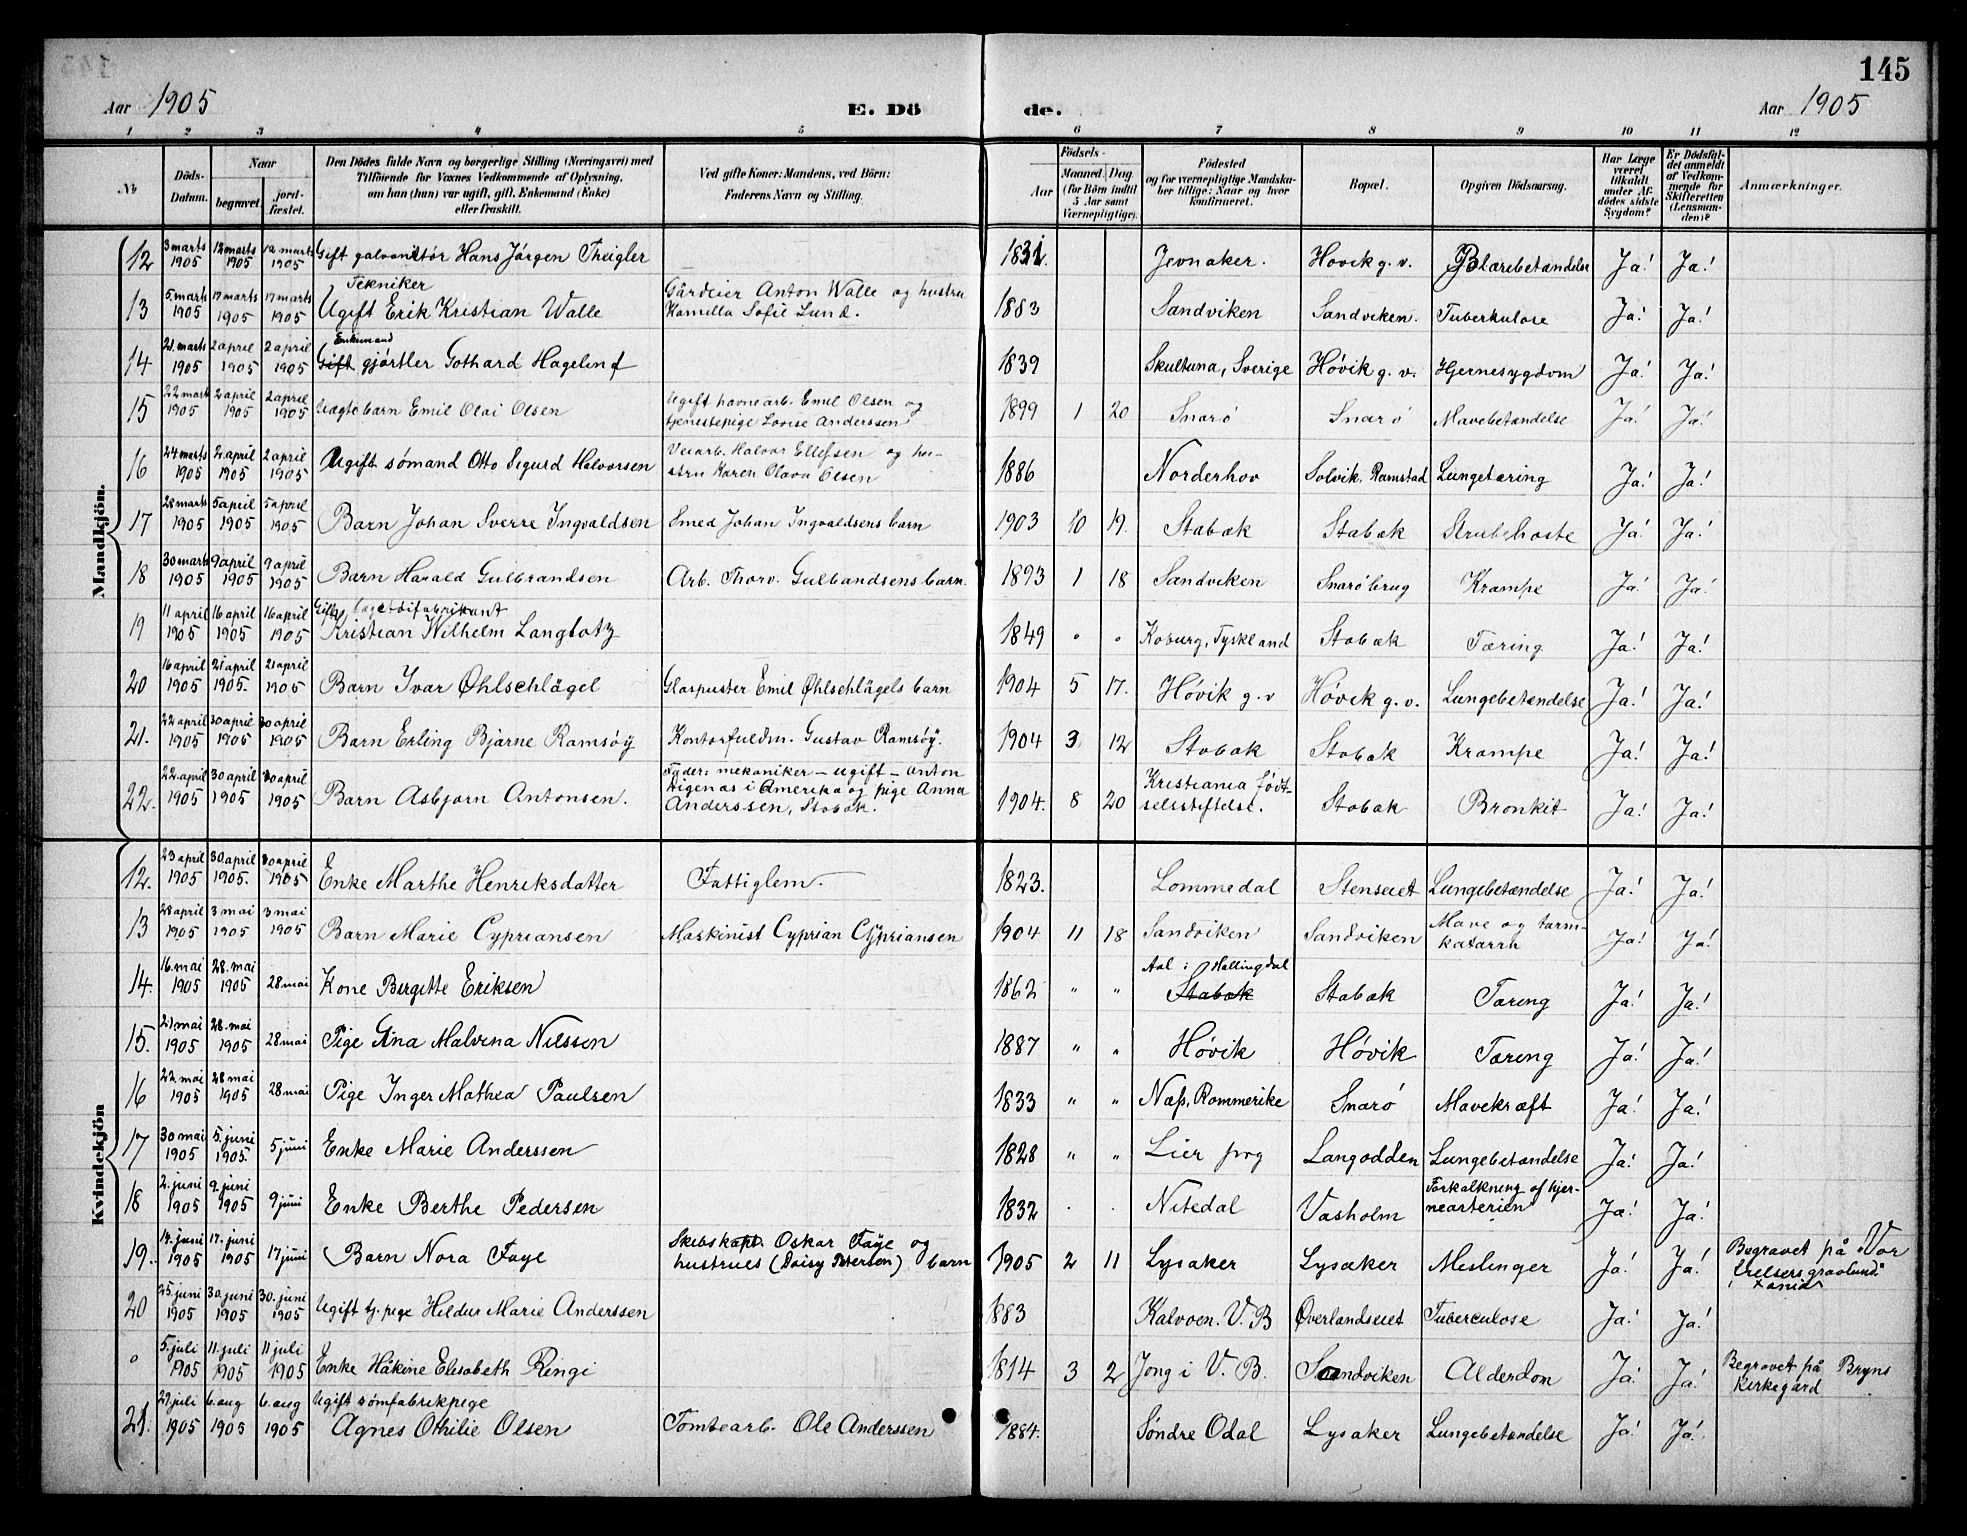 145
Aar 1905
E. Dö de.
Aar 1905
1 2 3 4 5 6 7 8 9 10 11 12
№
Döds-Datum.
Naar
begravet.
jord-fæstet.
Den Dödes fulde Navn og borgerlige Stilling (Næringsvei) med
Tilföiende for Voxnes Vedkommende af Oplysning,
om han (hun) var ugift, gift, Enkemand (Enke)
eller fraskilt.
Ved gifte Koner: Mandens, ved Börn:
Faderens Navn og Stilling.
Födsels-
Aar
Maaned. Dag.
(for Börn indtil
5 Aar samt
Værnepligtige).
Födested
og for værnepligtige Mandska-
ber tillige: Naar og hvor
konfirmeret.
Bopæl.
Opgiven Dödsaarsag.
Har Læge
været
tilkaldt
under Af-
dödes sidste
Sygdom?
Er Dödsfal-
det anmeldt
af Vedkom-
mende for
Skifteretten
(Lensman-
den)?
Anmærkninger.
Mandkjön.
12 3 marts 1905 12 marts 1905 12 marts 1905 Gift galvanitør Hans Jørgen Theigler 1831. Jevnaker. Høvik g. v. Blærebetændelse Ja! Ja!
13 5. marts 1905 17 marts 1905 17 marts 1905 Tekniker Ugift Erik Kristian Walle Gårdeier Anton Walle og hustru Kamilla Sofie Lund. 1883 Sandviken Sandviken. Tuberkulose Ja! Ja!
14 21. marts 1905 2 april 1905 2 april 1905 Enkemand Gift gjørtler Gothard Hagelin 1839 Skultuna, Sverige Høvik g. v. Hjernesygdom Ja! Ja!
15 22 mart 1905 2 april 1905 2 april 1905 Uægte barn Emil Olai Olsen Ugift havnearb. Emil Olsen og tjenestepige Lovise Anderssen 1899 1 20 Snarø Snarø Mavebetændelse Ja! Ja!
16 24 marts 1905 2. april 1905 2 april 1905 Ugift sømand Otto Sigurd Halvorsen Veiarb. Halvor Ellefsen og hustru Karen Olava Olsen 1886 Norderhov Solvik, Ramstad Lungetæring Ja! Ja!
17 28 marts 1905 5 april 1905 5 april 1905 Barn Johan Sverre Ingvaldsen Smed Johan Ingvaldsens barn 1903 10 19. Stabæk Stabæk Strubehoste Ja! Ja!
18 30 marts 1905 9 april 1905 9 april 1905 Barn Harald Gulbrandsen Arb. Thorv. Gulbandsens barn. 1893 1 18 Sandviken Snarøbrug Krampe Ja! Ja!
19 11 april 1905 16 april 1905 16 april 1905 Gift Kristian Wilhelm Langlotz 1849 " " Koburg, Tyskland Stabæk Tæring Ja! Ja!
20 16 april 1905 21 april 1905. 21 april 1905 Barn Ivar Øhlschlägel Glaspuster Emil Øhlschlägels barn 1904 5 17. Høvik g. v Høvik g. v. Lungebetændelse Ja! Ja!
21. 22 april 1905 30 april 1905 30 april 1905 Barn Erling Bjarne Ramsøy Kontorfuldm. Gustav Ramsøy. 1904 3 12 Stabæk Stabæk Krampe Ja! Ja!
22. 22. april 1905 30 april 1905 30 april 1905 Barn Asbjørn Antonsen. Fader: mekaniker – ugift – Anton Digenæs i Amerika og pige Anna Anderssen, Stabæk. 1904. 8 20 Kristiania fødselsstiftelse. Stabæk Bronkit Ja! Ja!
Kvindekjön
12. 23 april 1905 30 april 1905. 30 april 1905 Enke Marthe Henriksdatter Fattiglem. 1823. Lommedal Stenseiet Lungebetændelse Ja! Ja!
13 28 april 1905 3 mai 1905 3 mai 1905 Barn Marie Cypriansen Maskinist Cyprian Cypriansen 1904 11 18 Sandviken Sandviken Mave og tarmkatarrh Ja! Ja!
14. 16. mai 1905 28. mai 1905 28 mai Kone Birgitte Eriksen 1862 " " Aal i Hallingdal Stabæk Stabæk Tæring Ja! Ja!
15. 21 mai 1905 28. mai 1905 28 mai Pige Gina Malvina Nilssen 1887 " " Høvik Høvik Tæring Ja! Ja!
16 22. mai 1905 28 mai 1905 28 mai Pige Inger Mathea Paulsen 1833 " " Næs, Rommerike Snarø Mavekræft Ja! Ja!
17 30 mai 1905 5. juni 1905. 5 juni Enke Marie Anderssen 1828 " " Lier prg Langodden Lungebetændelse Ja! Ja!
18 2. juni 1905 9. juni 1905 9 juni Enke Berthe Pedersen 1832 . . Nitedal Vasholm Forkalkning af hjernearterien Ja! Ja!
19. 14. juni 1905 17. juni 1905 17 juni Barn Nora Faye Skibskapt. Oskar Faye og hustrues (Daisy Petersen) barn 1905 2 11 Lysaker Lysaker Meslinger Ja! Ja! Begravet på "Vor Frelsers gravlund"
20 25. juni 1905 30 juni 1905 30. juni 1905 Ugift tj. pige Hildur Marie Anderssen 1883 Kalvøen. V. B Øverlandseiet Tuberculose Ja! Ja!
" 5. juli 1905 11. juli 1905 11 juli 1905 Enke Håkine Elisabeth Ringi 1814 3 2 Jong i V. B. Sandviken Alderdom Ja! Ja! Begravet på Bryns kirkegård
21. 29. juli 1905 6. aug 1905 6. aug 1905 Ugift sømfabrikpige Agnes Othilie Olsen Tomtearb. Ole Anderssen 1884. Søndre Odal Lysaker Lungebetændelse Ja! Ja!